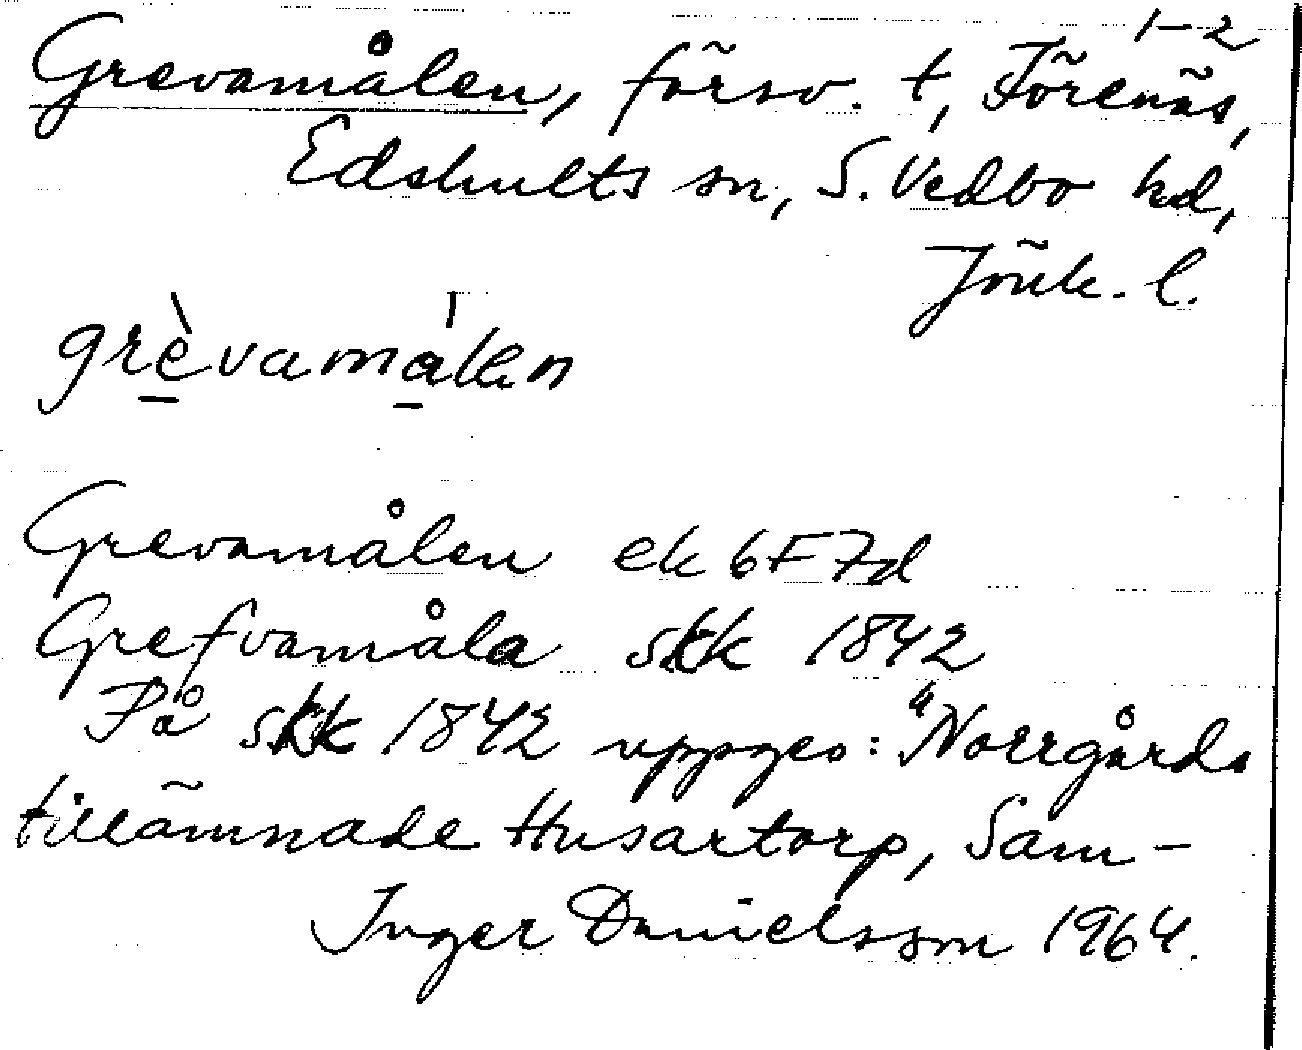 1–2
Grevamålen, försv. t, Förenäs,
Edshults sn, S. Vedbo hd,
Jönk. l.
grèvamålen
Grevamålen ek 6F7d
Grefvamåla skk 1842
På skk 1842 uppges: "Norrgårds
tillämnade Husartorp, Sam–
Inger Danielsson 1964.